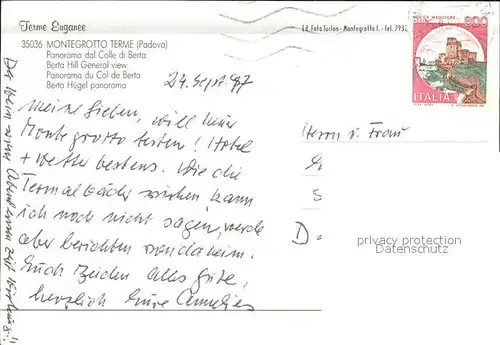 Terme Euganee
35036 MONTEGROTTO TERME (Padova)
Panorama dal Colle di Berta
Berta Hill General view
Panorama du Col de Berta
Berta Hügel panorama
Ed. Foto Turlon - Montegrotto T. - Tel. 7932
ROCCA MAGGIORE
800
ITALIA
24. Sept. 97
Meine Lieben, will hier
Montegrotto testen! Hotel
+ Wetter bestens. Wie die
Thermalbäder wirken kann
ich noch nicht sagen, werde
aber berichten von daheim.
Euch beiden alles Gute,
herzlich Eure Annelies
Herrn u. Frau
S
D-
privacy protection
Datenschutz
Der Wein zum Abendessen zeigt Wirkung!!